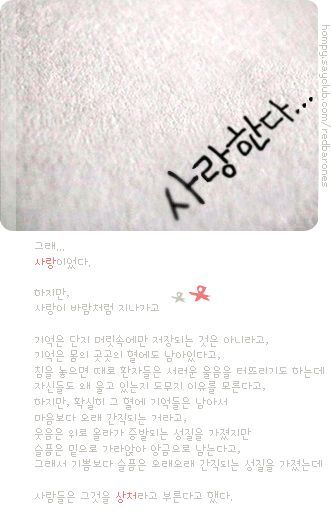 사랑한다...
hompy.sayclub.com/redbarones
그래...
사랑이었다.
하지만,
사랑이 바람처럼 지나가고
기억은 단지 머릿속에만 저장되는 것은 아니라고,
기억은 몸의 곳곳의 혈에도 남아있다고,
침을 놓으면 때로 환자들은 서러운 울음을 터뜨리기도 하는데
자신들도 왜 울고 있는지 도무지 이유를 모른다고,
하지만, 확실히 그 혈에 기억들은 남아서
마음보다 오래 간직되는 거라고,
웃음은 위로 올라가 증발되는 성질을 가졌지만
슬픔은 밑으로 가라앉아 앙금으로 남는다고,
그래서 기쁨보다 슬픔은 오래오래 간직되는 성질을 가졌는데
사람들은 그것을 상처라고 부른다고 했다.